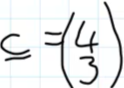 c = (4
3)